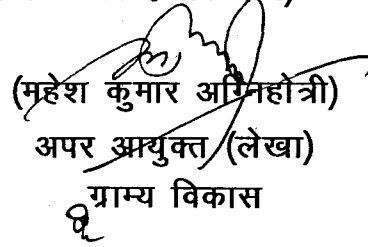 (महेश कुमार अग्निहोत्री)
अपर आयुक्त (लेखा)
ग्राम्य विकास